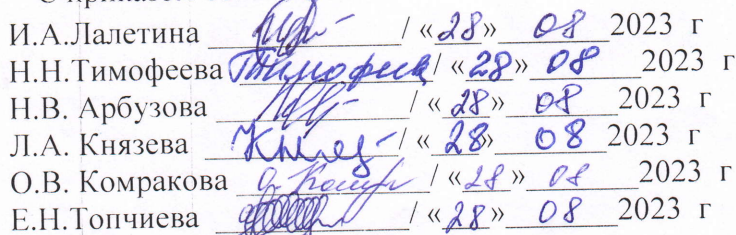 И.А.Лалетина / «28» 08 2023 г
Н.Н.Тимофеева Тимофеев / «28» 08 2023 г
Н.В. Арбузова / «28» 08 2023 г
Л.А. Князева / «28» 08 2023 г
О.В. Комракова / «28» 08 2023 г
Е.Н.Топчиева / «28» 08 2023 г